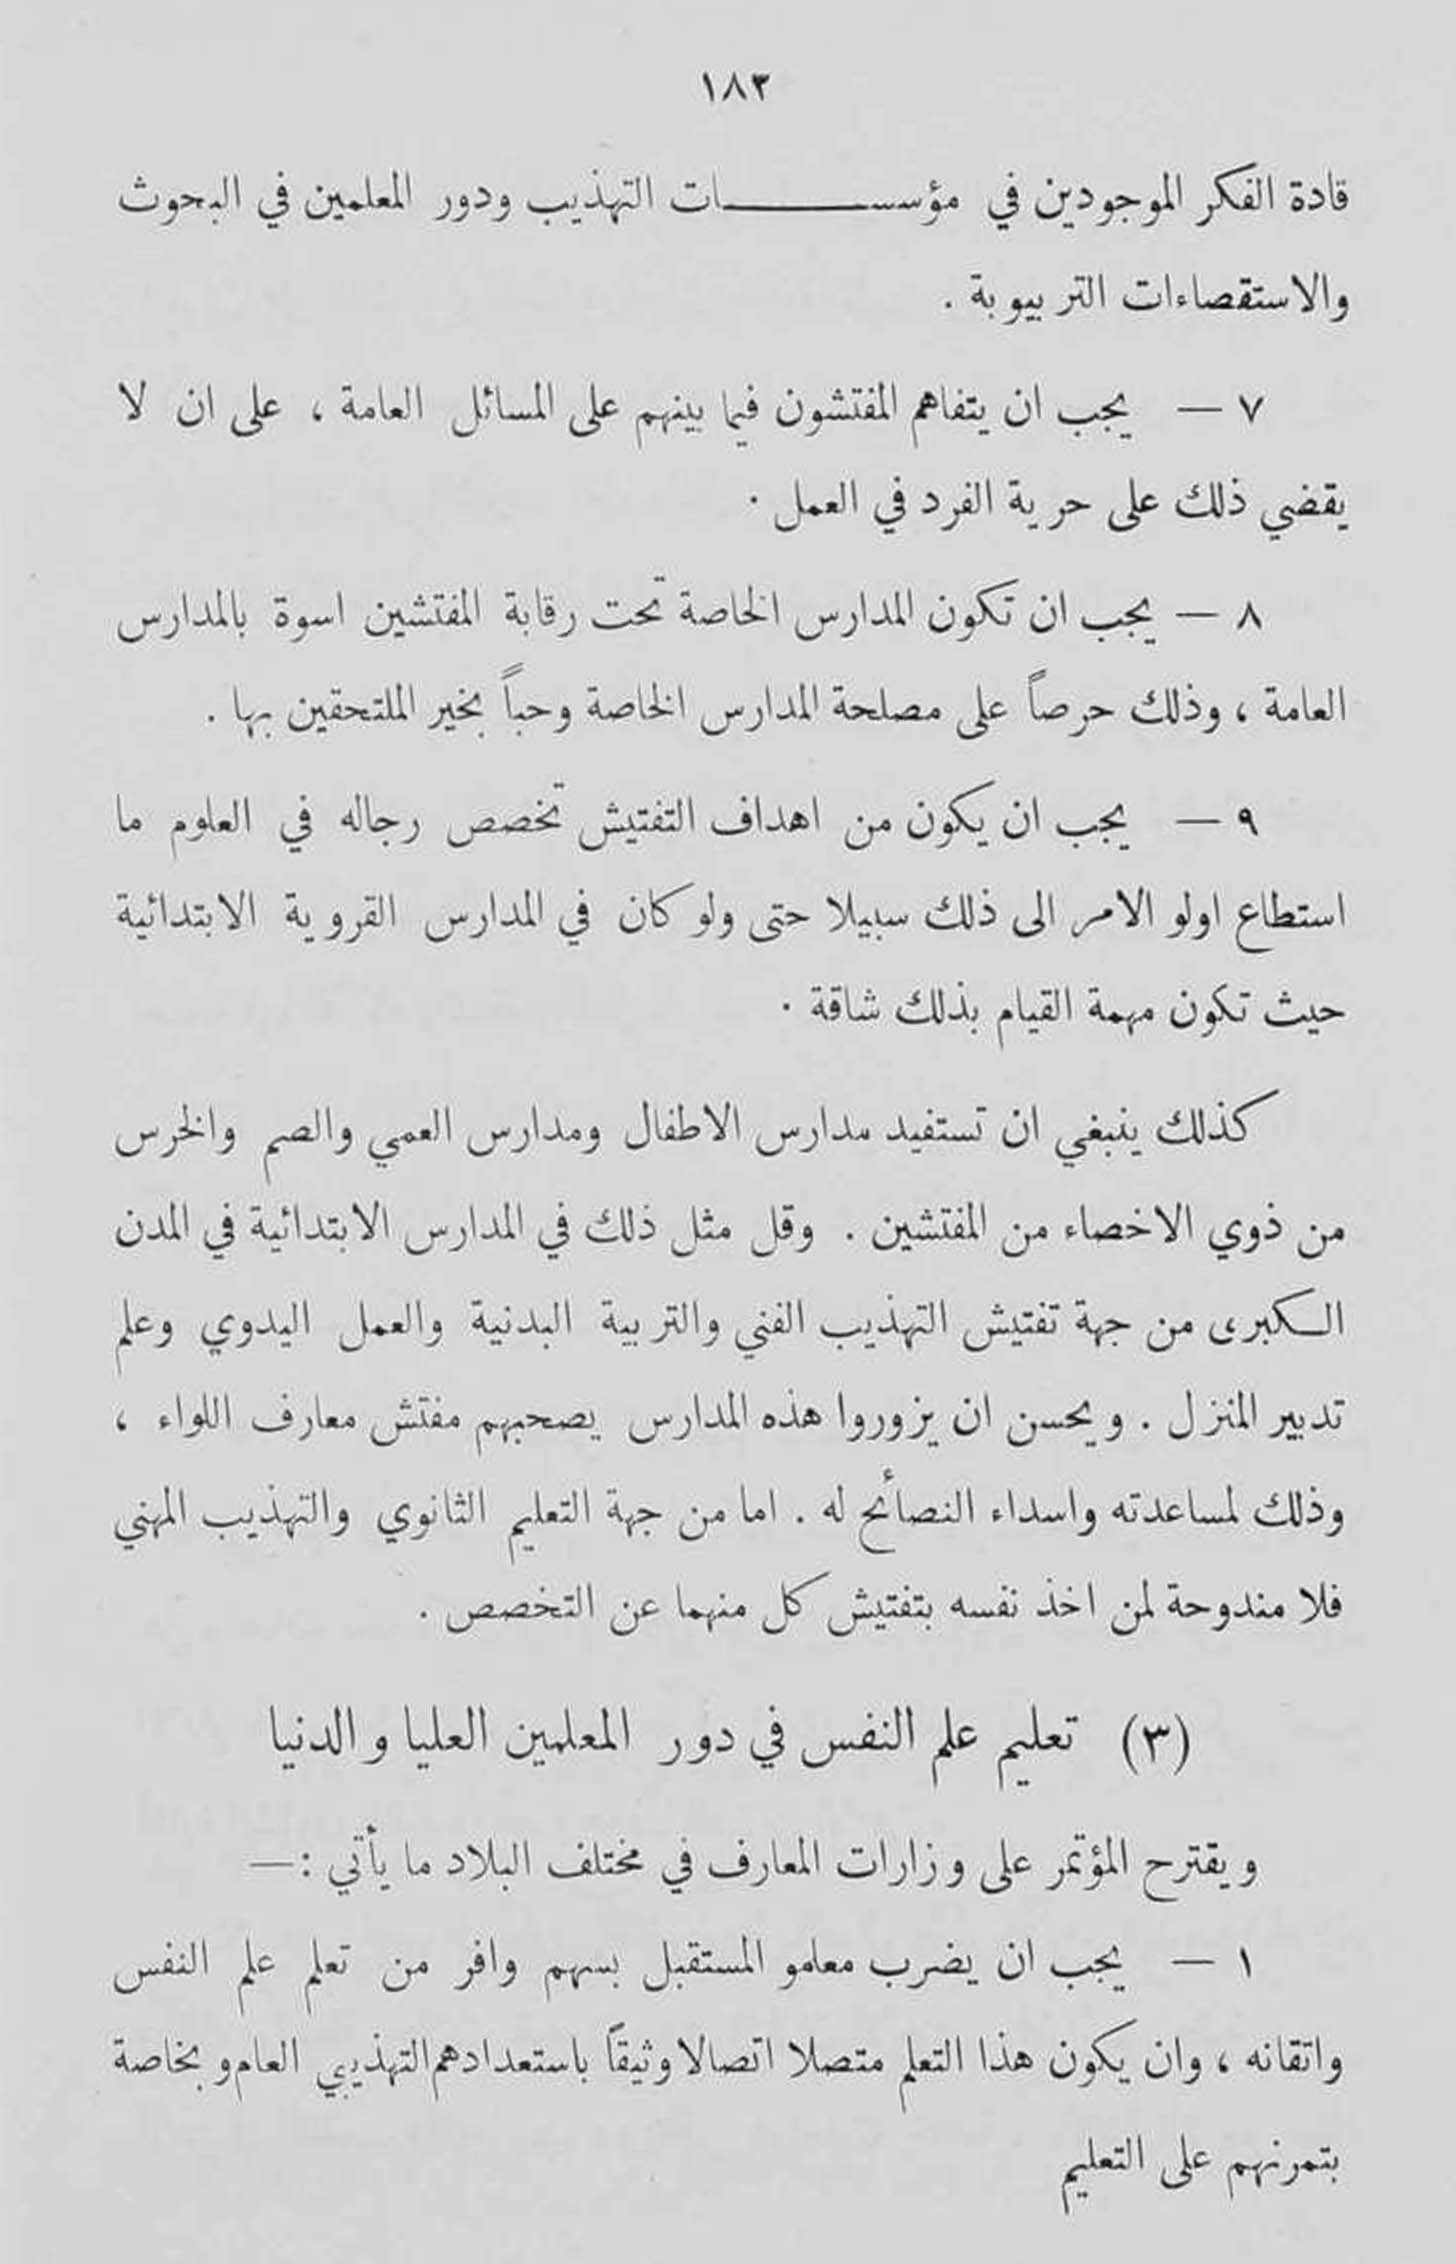 ١٨٣
قادة الفكر الموجودين في مؤسســـــــات التهذيب ودور المعلمين في البحوث
والاستقصاءات التربيوية .
٧ — يجب ان يتفاهم المفتشون فيما بينهم على المسائل العامة ، على ان لا
يقضي ذلك على حرية الفرد في العمل .
٨ — يجب ان تكون المدارس الخاصة تحت رقابة المفتشين اسوة بالمدارس
العامة ، وذلك حرصاً على مصلحة المدارس الخاصة وحباً بخير الملتحقين بها .
٩ — يجب ان يكون من اهداف التفتيش تخصص رجاله في العلوم ما
استطاع اولو الامر الى ذلك سبيلا حتى ولو كان في المدارس القروية الابتدائية
حيث تكون مهمة القيام بذلك شاقة .
كذلك ينبغي ان تستفيد مدارس الاطفال ومدارس العمي والصم والخرس
من ذوي الاخصاء من المفتشين . وقل مثل ذلك في المدارس الابتدائية في المدن
الـكبرى من جهة تفتيش التهذيب الفني والتربية البدنية والعمل اليدوي وعلم
تدبير المنزل . ويحسن ان يزوروا هذه المدارس يصحبهم مفتش معارف اللواء ،
وذلك لمساعدته واسداء النصائح له . اما من جهة التعليم الثانوي والتهذيب المهني
فلا مندوحة لمن اخذ نفسه بتفتيش كل منهما عن التخصص .
(٣) تعليم علم النفس في دور المعلمين العليا والدنيا
ويقترح المؤتمر على وزارات المعارف في مختلف البلاد ما يأتي :—
١ — يجب ان يضرب معلمو المستقبل بسهم وافر من تعلم علم النفس
واتقانه ، وان يكون هذا التعلم متصلا اتصالا وثيقاً باستعدادهم التهذيبي العام وبخاصة
بتمرنهم على التعليم